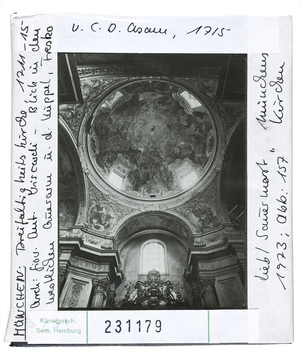 v. C. D. Asam, 1715
MÜNCHEN: Dreifaltigkeitskirche, 1711-15
Arch: Giov. Ant. Viscardi - Blick in den
westlichen Querarm u. d. Kuppel, Fresko
Lieb / Sauermost "Münchens
Kirchen
1973; Abb: 157"
Kunstgesch.
Sem. Hamburg
231179